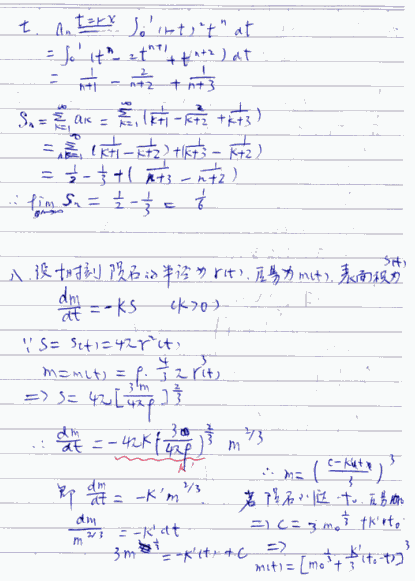 七. an t=1-x ∫₀¹(1-t)²tⁿdt
= ∫₀¹(tⁿ-2tⁿ⁺¹+tⁿ⁺²)dt
= 1/(n+1) - 2/(n+2) + 1/(n+3)
Sn = ∑(k=1,∞) ak = ∑(k=1,∞) (1/(k+1) - 2/(k+2) + 1/(k+3))
= ∑(k=1,∞) (1/(k+1) - 1/(k+2)) + (1/(k+3) - 1/(k+2))
= 1/2 - 1/3 + (1/(n+3) - 1/(n+2))
∴ lim Sn = 1/2 - 1/3 = 1/6
八. 设t时刻陨石的半径为r(t). 质量为m(t). 表面积为S(t)
dm/dt = -KS (K>0)
∵ S = S(t) = 4πr²(t)
m = m(t) = ρ·4/3 πr³(t)
=> S = 4π[3m/4πρ]^(2/3)
∴ dm/dt = -4πK(3/4πρ)^(2/3) m^(2/3)
K'
即 dm/dt = -K'm^(2/3)
dm/m^(2/3) = -K'dt
3m^(1/3) = -K'(t) + C
∴ m = ((C-K't)/3)³
t₀
=> C = 3m₀^(1/3) + K't₀
=> m(t) = [m₀^(1/3) + K'/3(t₀-t)]³